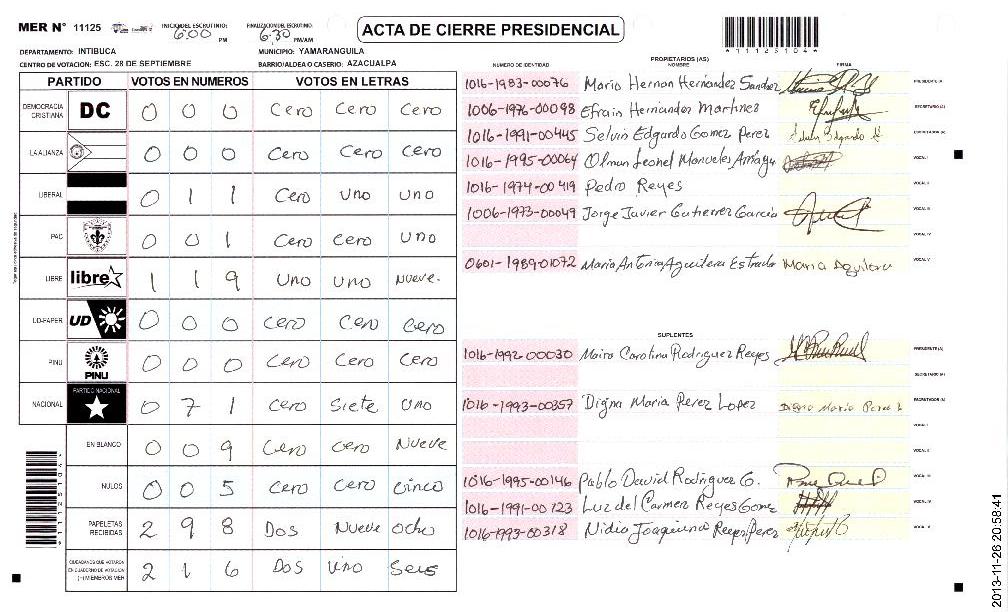 MER N° 11125
INICIO DEL ESCRUTINIO: 6:00 PM
FINALIZACION DEL ESCRUTINIO: 6:30 PM/AM
ACTA DE CIERRE PRESIDENCIAL
DEPARTAMENTO: INTIBUCA
MUNICIPIO: YAMARANGUILA
CENTRO DE VOTACION: ESC. 28 DE SEPTIEMBRE
BARRIO/ALDEA O CASERIO: AZACUALPA
PARTIDO VOTOS EN NUMEROS VOTOS EN LETRAS
DEMOCRACIA CRISTIANA DC 0 0 0 Cero Cero Cero
LA ALIANZA 0 0 0 Cero Cero Cero
LIBERAL 0 1 1 Cero Uno Uno
PAC 0 0 1 Cero Cero Uno
LIBRE libre 1 1 9 Uno Uno Nueve.
UD-FAPER UD 0 0 0 Cero Cero Cero
PINU PINU 0 0 0 Cero Cero Cero
NACIONAL PARTIDO NACIONAL 0 7 1 Cero Siete Uno
EN BLANCO 0 0 9 Cero Cero Nueve
NULOS 0 0 5 Cero Cero Cinco
PAPELETAS RECIBIDAS 2 9 8 Dos Nueve Ocho
CIUDADANOS QUE VOTARON EN CUADERNO DE VOTACION (+) MIEMBROS MER 2 1 6 Dos Uno Seis
*11125104*
PROPIETARIOS (AS)
NUMERO DE IDENTIDAD NOMBRE FIRMA
1016-1983-00076 Mario Hernan Hernandez Sanchez PRESIDENTE (A)
1006-1976-00098 Efrain Hernandez Martinez SECRETARIO (A)
1016-1991-00445 Selvin Edgardo Gomez Perez ESCRUTADOR (A)
1016-1995-00064 Olman Leonel Manueles VOCAL I
1016-1974-00419 Pedro Reyes VOCAL II
1006-1973-00049 Jorge Javier Gutierrez Garcia VOCAL III
VOCAL IV
0601-1989-01072 Maria Antonia Aguilera Estrada Maria Aguilera VOCAL V
SUPLENTES
1016-1992-00030 Maira Carolina Rodriguez Reyes PRESIDENTE (A)
SECRETARIO (A)
1016-1993-00357 Digna Maria Perez Lopez Digna Maria Perez L ESCRUTADOR (A)
VOCAL I
VOCAL II
1016-1995-00146 Pablo David Rodriguez G. VOCAL III
1016-1991-00723 Luz del Carmen Reyes Gomez VOCAL IV
1016-1993-00318 Nidia Joaquina Reyes Perez VOCAL V
2013-11-26 20:58:41